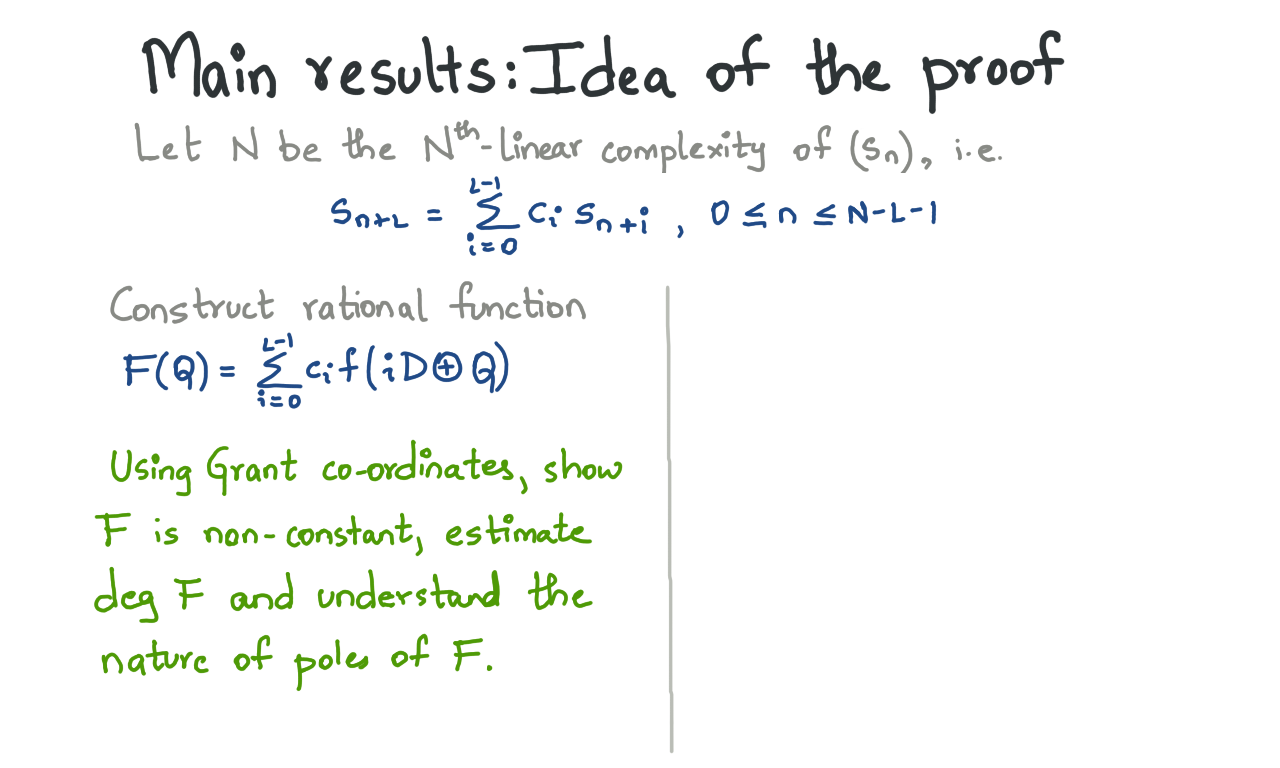 Main results: Idea of the proof
Let N be the Nth-linear complexity of (Sn), i.e.
S_{n+L} = \sum_{i=0}^{L-1} c_i S_{n+i} , 0 ≤ n ≤ N-L-1
Construct rational function
F(Q) = \sum_{i=0}^{L-1} c_i f(iD ⊕ Q)
Using Grant co-ordinates, show
F is non-constant, estimate
deg F and understand the
nature of poles of F.